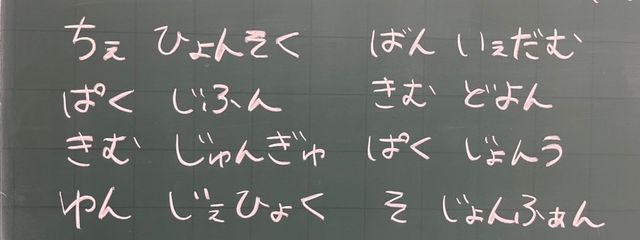 ちぇ ひょんそく ばん いぇだむ
ぱく じふん きむ どよん
きむ じゅんぎゅ ぱく じょんう
ゆん じぇひょく そ じょんふぁん